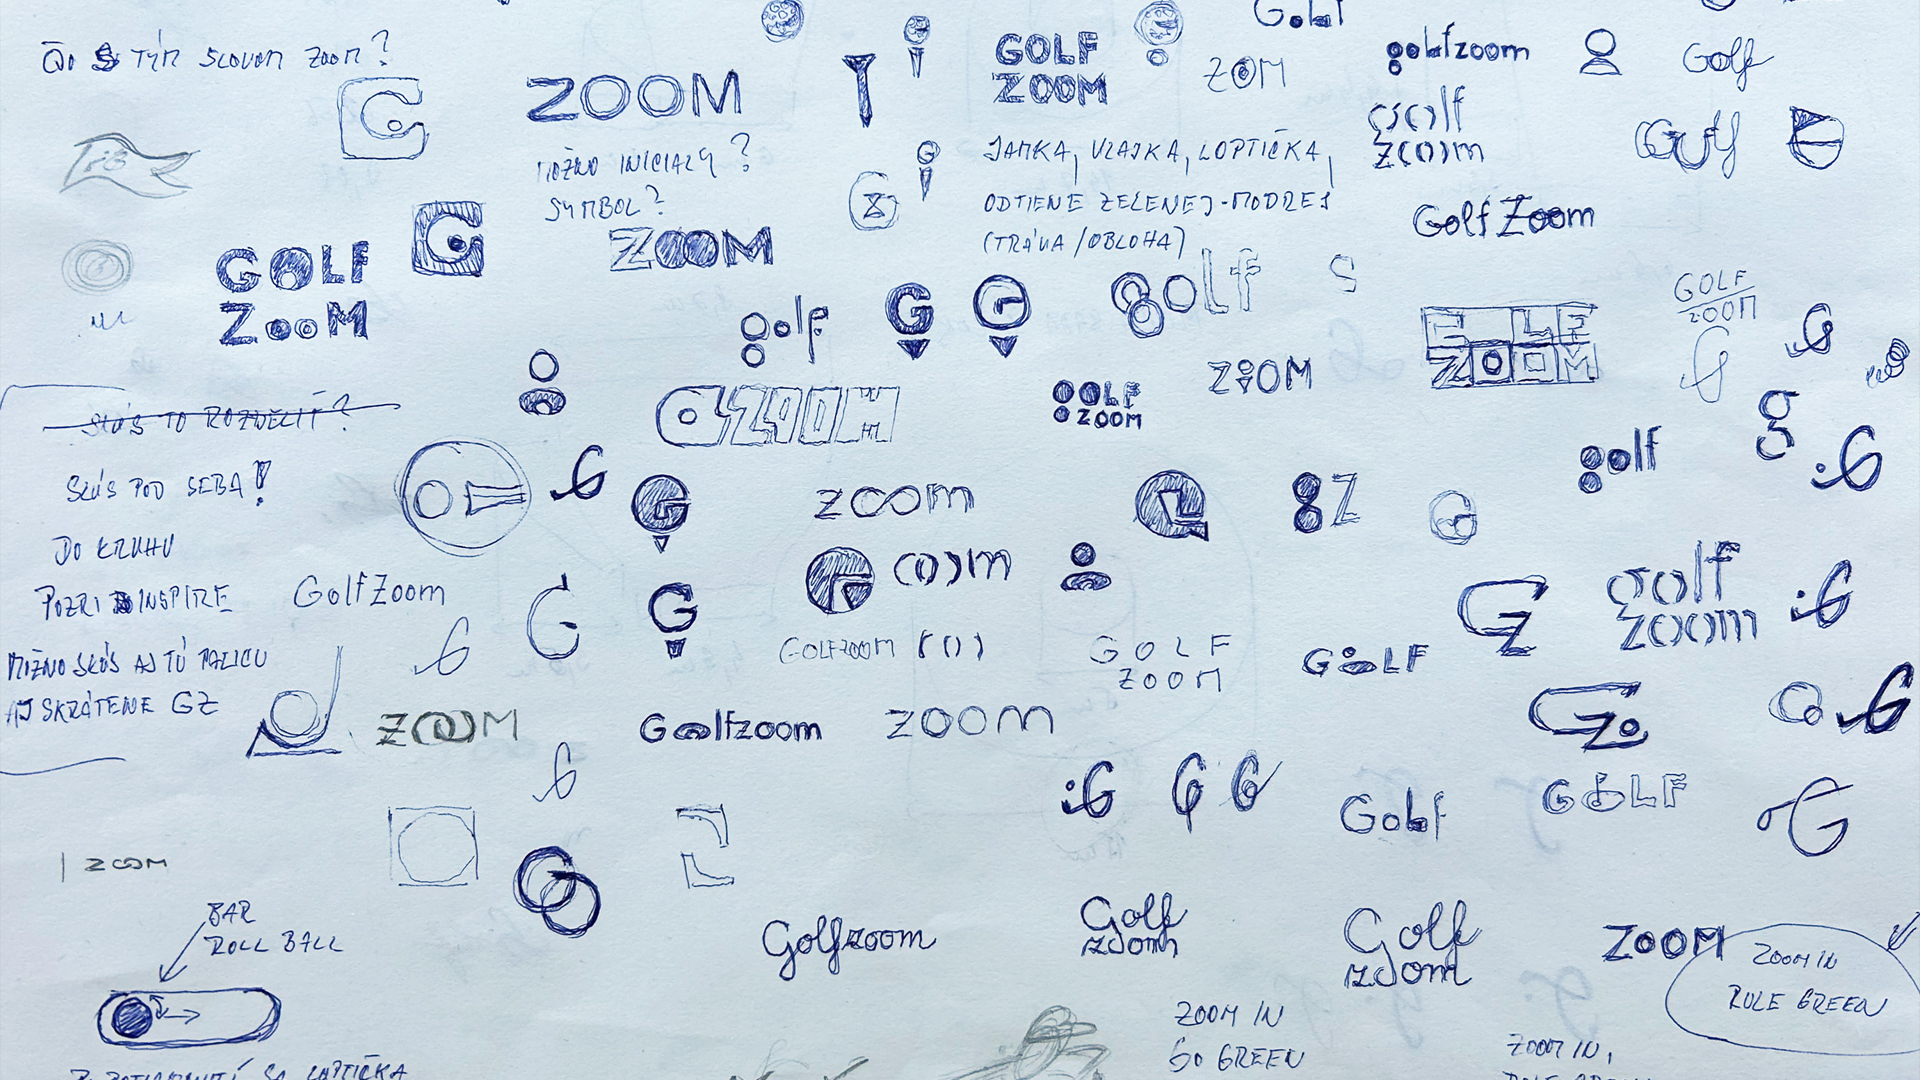 ČO S TÝM SLOVOM ZOOM?
ZOOM
GOLF
ZOOM
ZOM
Golf
golfzoom
Golf
MOŽNO INICIALY?
SYMBOL?
JAMKA, VLAJKA, LOPTIČKA,
ODTIENE ZELENEJ-MODREJ
(TRÁVA/OBLOHA)
golf
zoom
Golf
GOLF
ZOOM
ZOOM
Golf Zoom
golf
golf
S
GOLF
ZOOM
G
G
ZOOM
ZOOM
GOLF
ZOOM
ZOOM
G
g
golf
G
SKÚS TO ROZDELIŤ?
SKÚS POD SEBA!
DO KRUHU
POZRI INSPIRE
MOŽNO SKÚS AJ TÚ PALICU
AJ SKRÁTENE GZ
G
G
zoom
8Z
G
GolfZoom
G
G
()()m
GOLFZOOM
GOLF
ZOOM
GOLF
GZ
golf
zoom
G
ZOOM
Golfzoom
zoom
GZ
G
G
G G
Golf
GOLF
G
| ZOOM
BAR
ROLL BALL
Golfzoom
Golf
zoom
Golf
zoom
ZOOM
ZOOM IN
RULE GREEN
ZOOM IN
GO GREEN
ZOOM IN,
SA LOPTIČKA